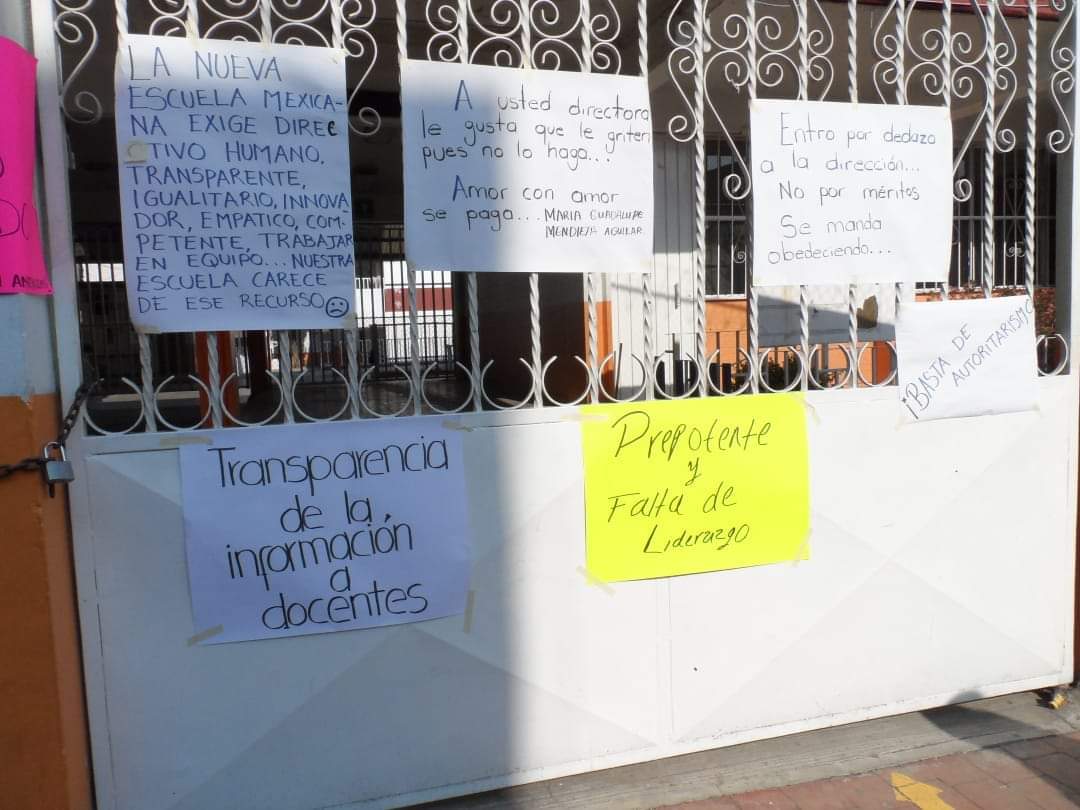 LA NUEVA
ESCUELA MEXICA-
NA EXIGE DIREC
TIVO HUMANO,
TRANSPARENTE,
IGUALITARIO, INNOVA
DOR, EMPATICO, COM-
PETENTE, TRABAJAR
EN EQUIPO... NUESTRA
ESCUELA CARECE
DE ESE RECURSO
A usted directora
le gusta que le griten
pues no lo haga...
Amor con amor
se paga... MARIA GUADALUPE
MENDIETA AGUILAR.
Entro por dedazo
a la dirección...
No por méritos
Se manda
obedeciendo...
¡BASTA DE
AUTORITARISMO
Transparencia
de la
información
a
docentes
Prepotente
y
Falta de
Liderazgo